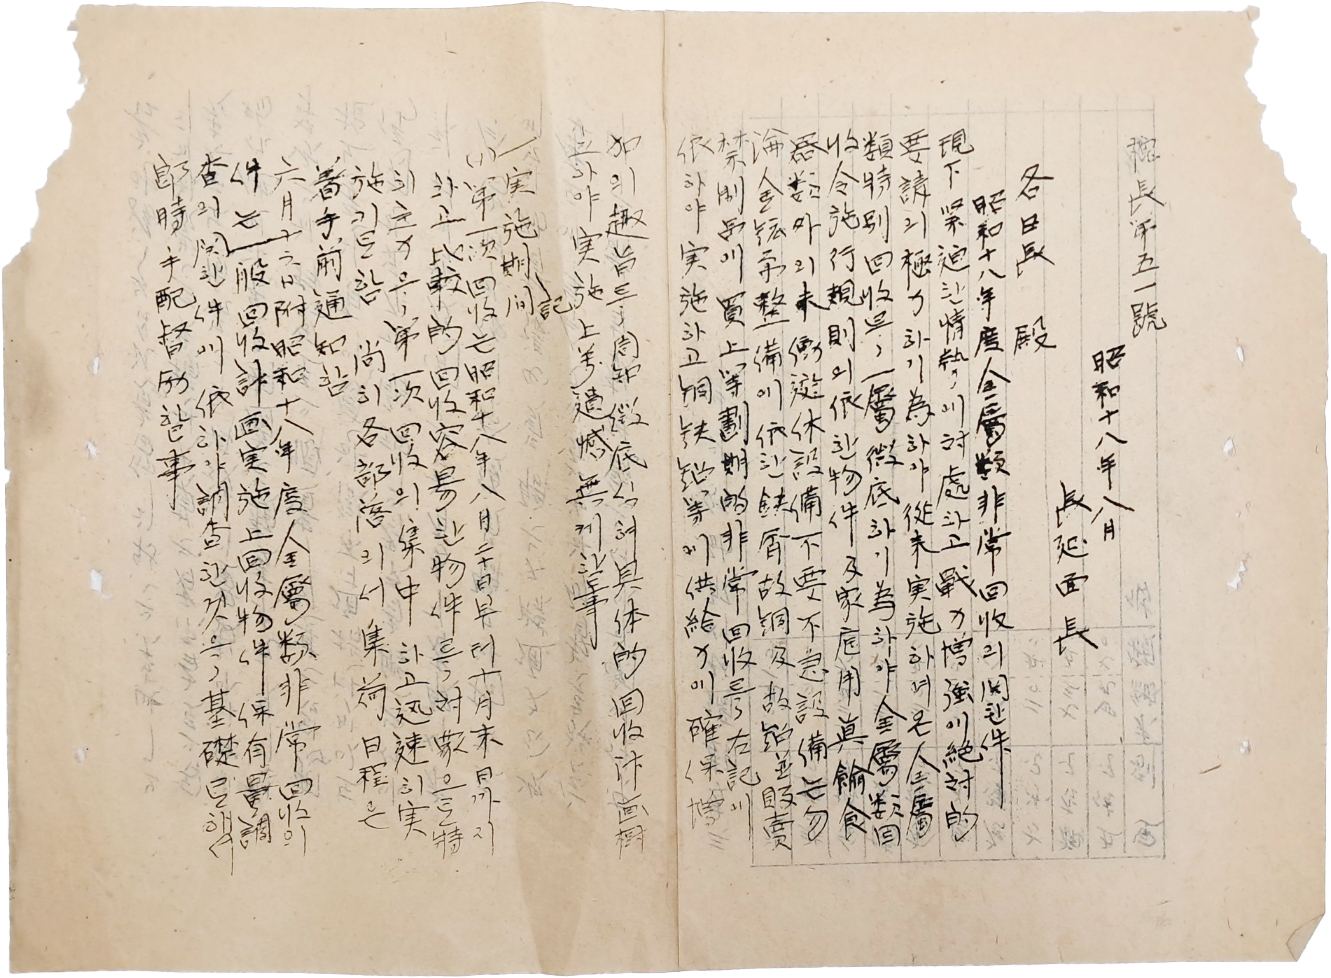 長延第五一號
昭和十八年八月
長延面長
各日長 殿
昭和十八年度金屬類非常回收의関한件
現下緊迫한情勢에対處하고戰力增強에絶対的
要請의極力하기為하야從来実施하여온金屬
類特別回收를一層徹底하기為하야金屬類回
收令施行規則의依한物件及家庭用真鍮食
器類外의未働遊休設備不要不急設備는勿
論金鉱業整備에依한鉄屑故銅及故鉛並販賣
禁制品에買上等劃期的非常回收를左記에
依하야実施하고銅鉄鉛等에供給力에確保
如의趣旨를周知徹底식혀具体的回收計画樹
하야実施上萬遺憾無케한事
記
一、実施期间
(1)第一次回收는昭和十八年八月二十日부터十月末日까지
하고比較的回收容易한物件를対象으로特
히主力을第一次回收의集中하고迅速히実
施키로함 尚히各部落의서集荷日程은
着手前通知함
六月十六日附昭和十八年度金屬類非常回收의
件는一般回收計画実施上回收物件保有量調
査의関한件에依하야調査한것을基礎로하여
即時手配督励할事